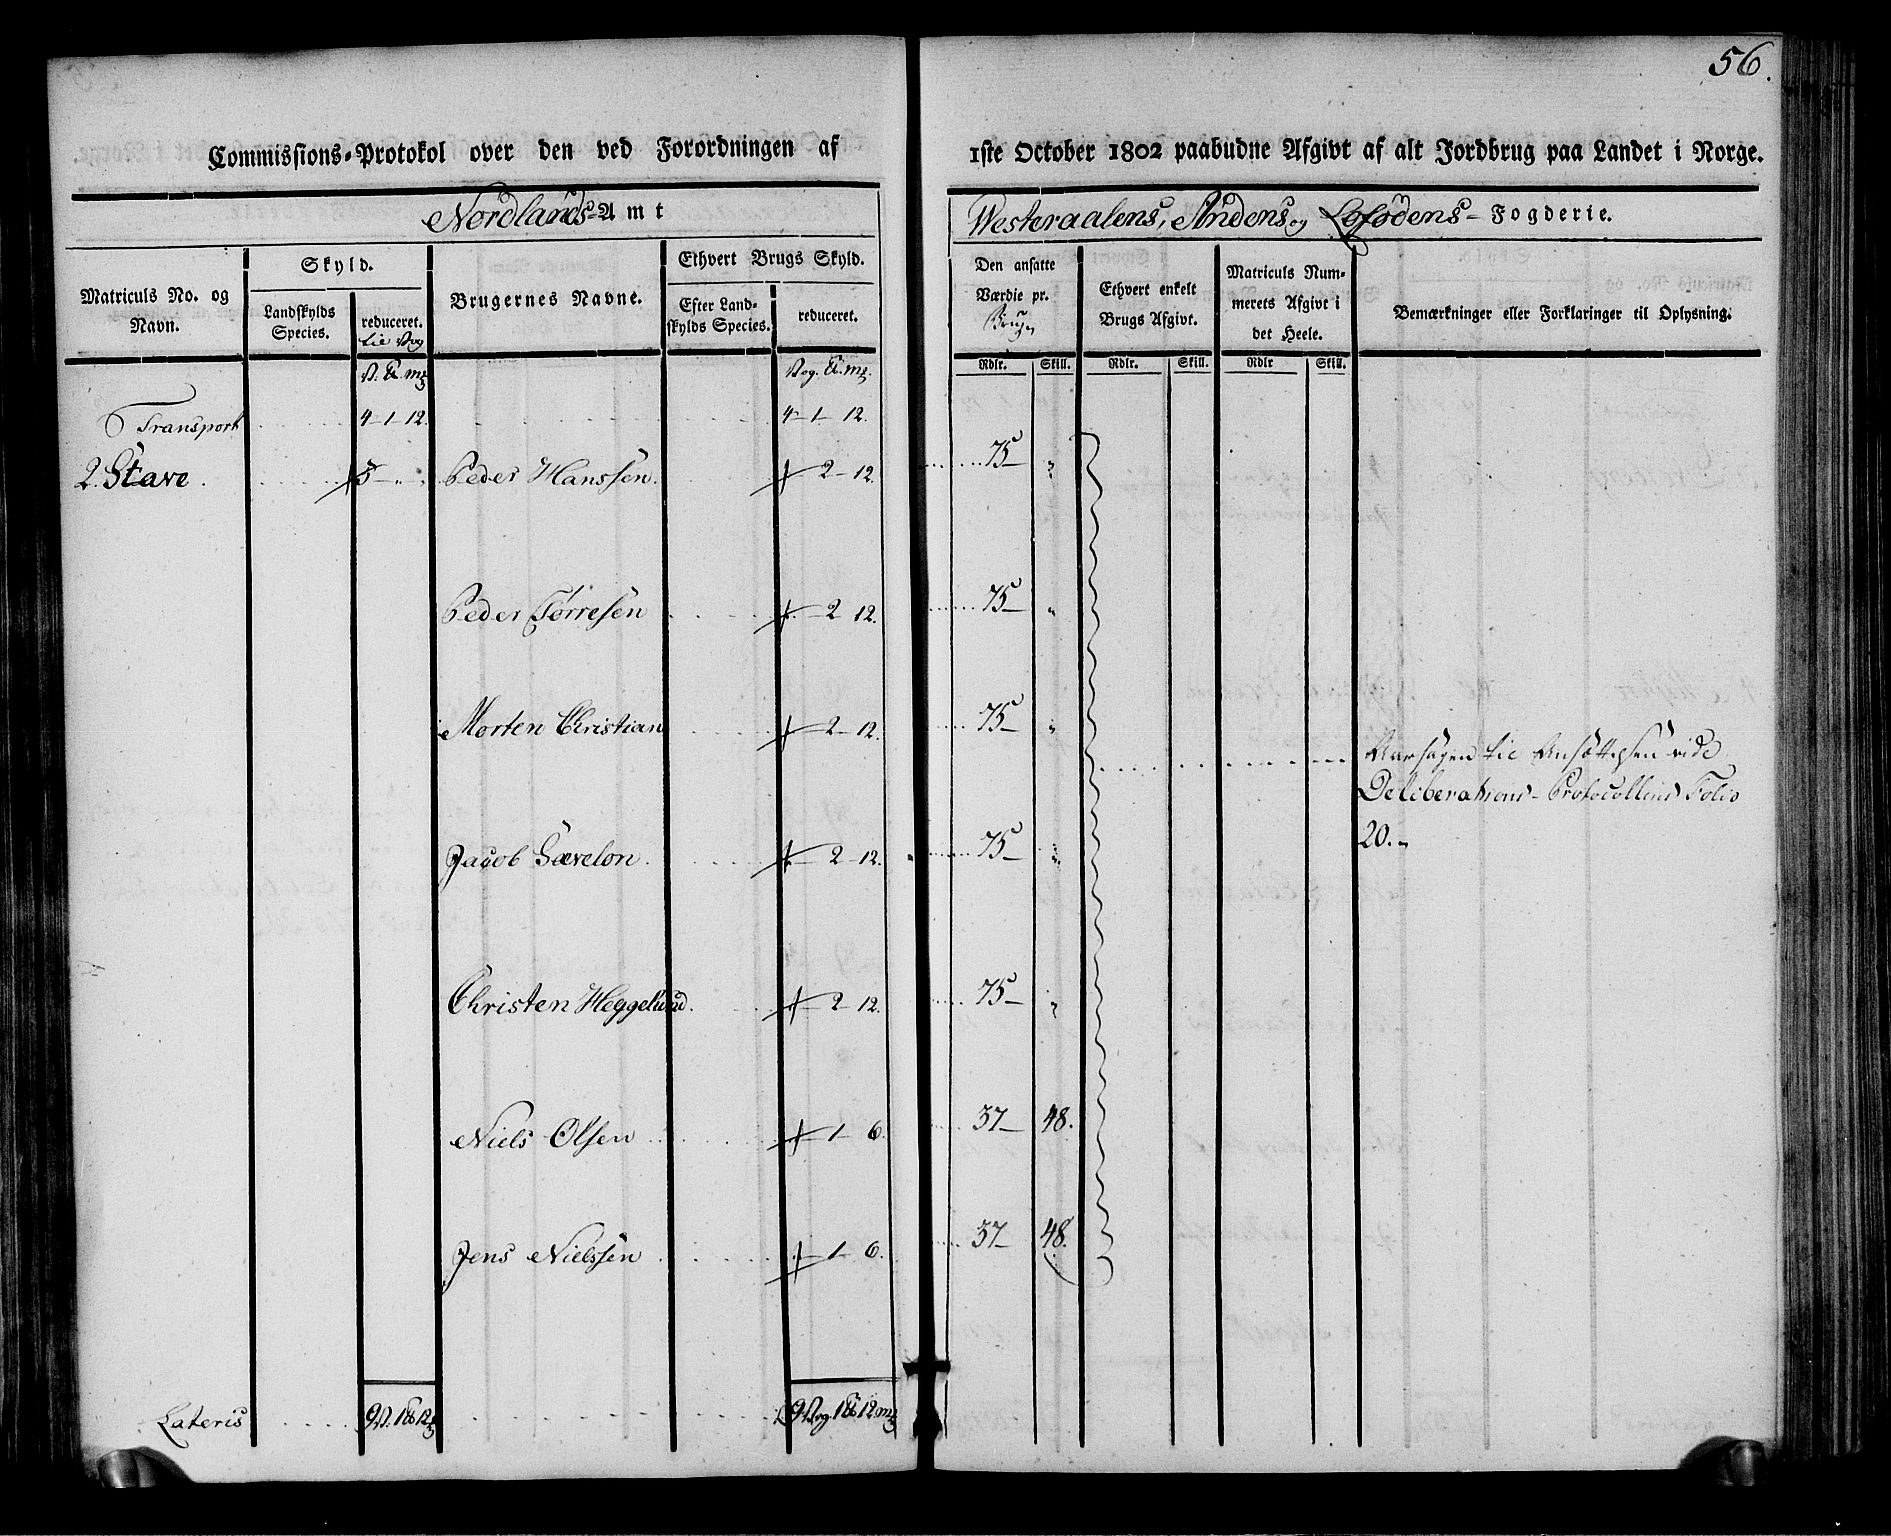 56.
Commissions-Protokol over den ved Forordningen af 1ste October 1802 paabudne Afgivt af alt Jordbrug paa Landet i Norge.
Nordlands-Amt
Westeraalens, Andens og Lofodens-Fogderie.
Matriculs No. og Navn.
Skyld.
Landskylds Species.
reduceret.
Brugernes Navne.
Ethvert Brugs Skyld.
Efter Landskylds Species.
reduceret.
Den ansatte Værdie pr. Brug
Ethvert enkelt Brugs Afgivt.
Matriculs Nummerets Afgivt i det Heele.
Bemærkninger eller Forklaringer til Oplysning.
Rdlr. Skill. Rdlr. Skill. Rdlr Skill.
Transport 4-1-12. 4-1-12.
2. Stave. 5-"-" Peder Hanssen. 2-12. 75- "
Peder Tørresen 2 12. 75- "
Morten Christian 2-12. 75- "
Aarsagen til Ansættelsen vide
Deliberations-Protocollens Folio
20.
Jacob Sævelon. 2-12. 75- "
Christen Heggelund. 2-12. 75- "
Niels Olsen 1-6. 37- 48.
Jens Nielssen 1-6. 37- 48.
Lateris 9 V. 1 12 9 Vog. 1 12